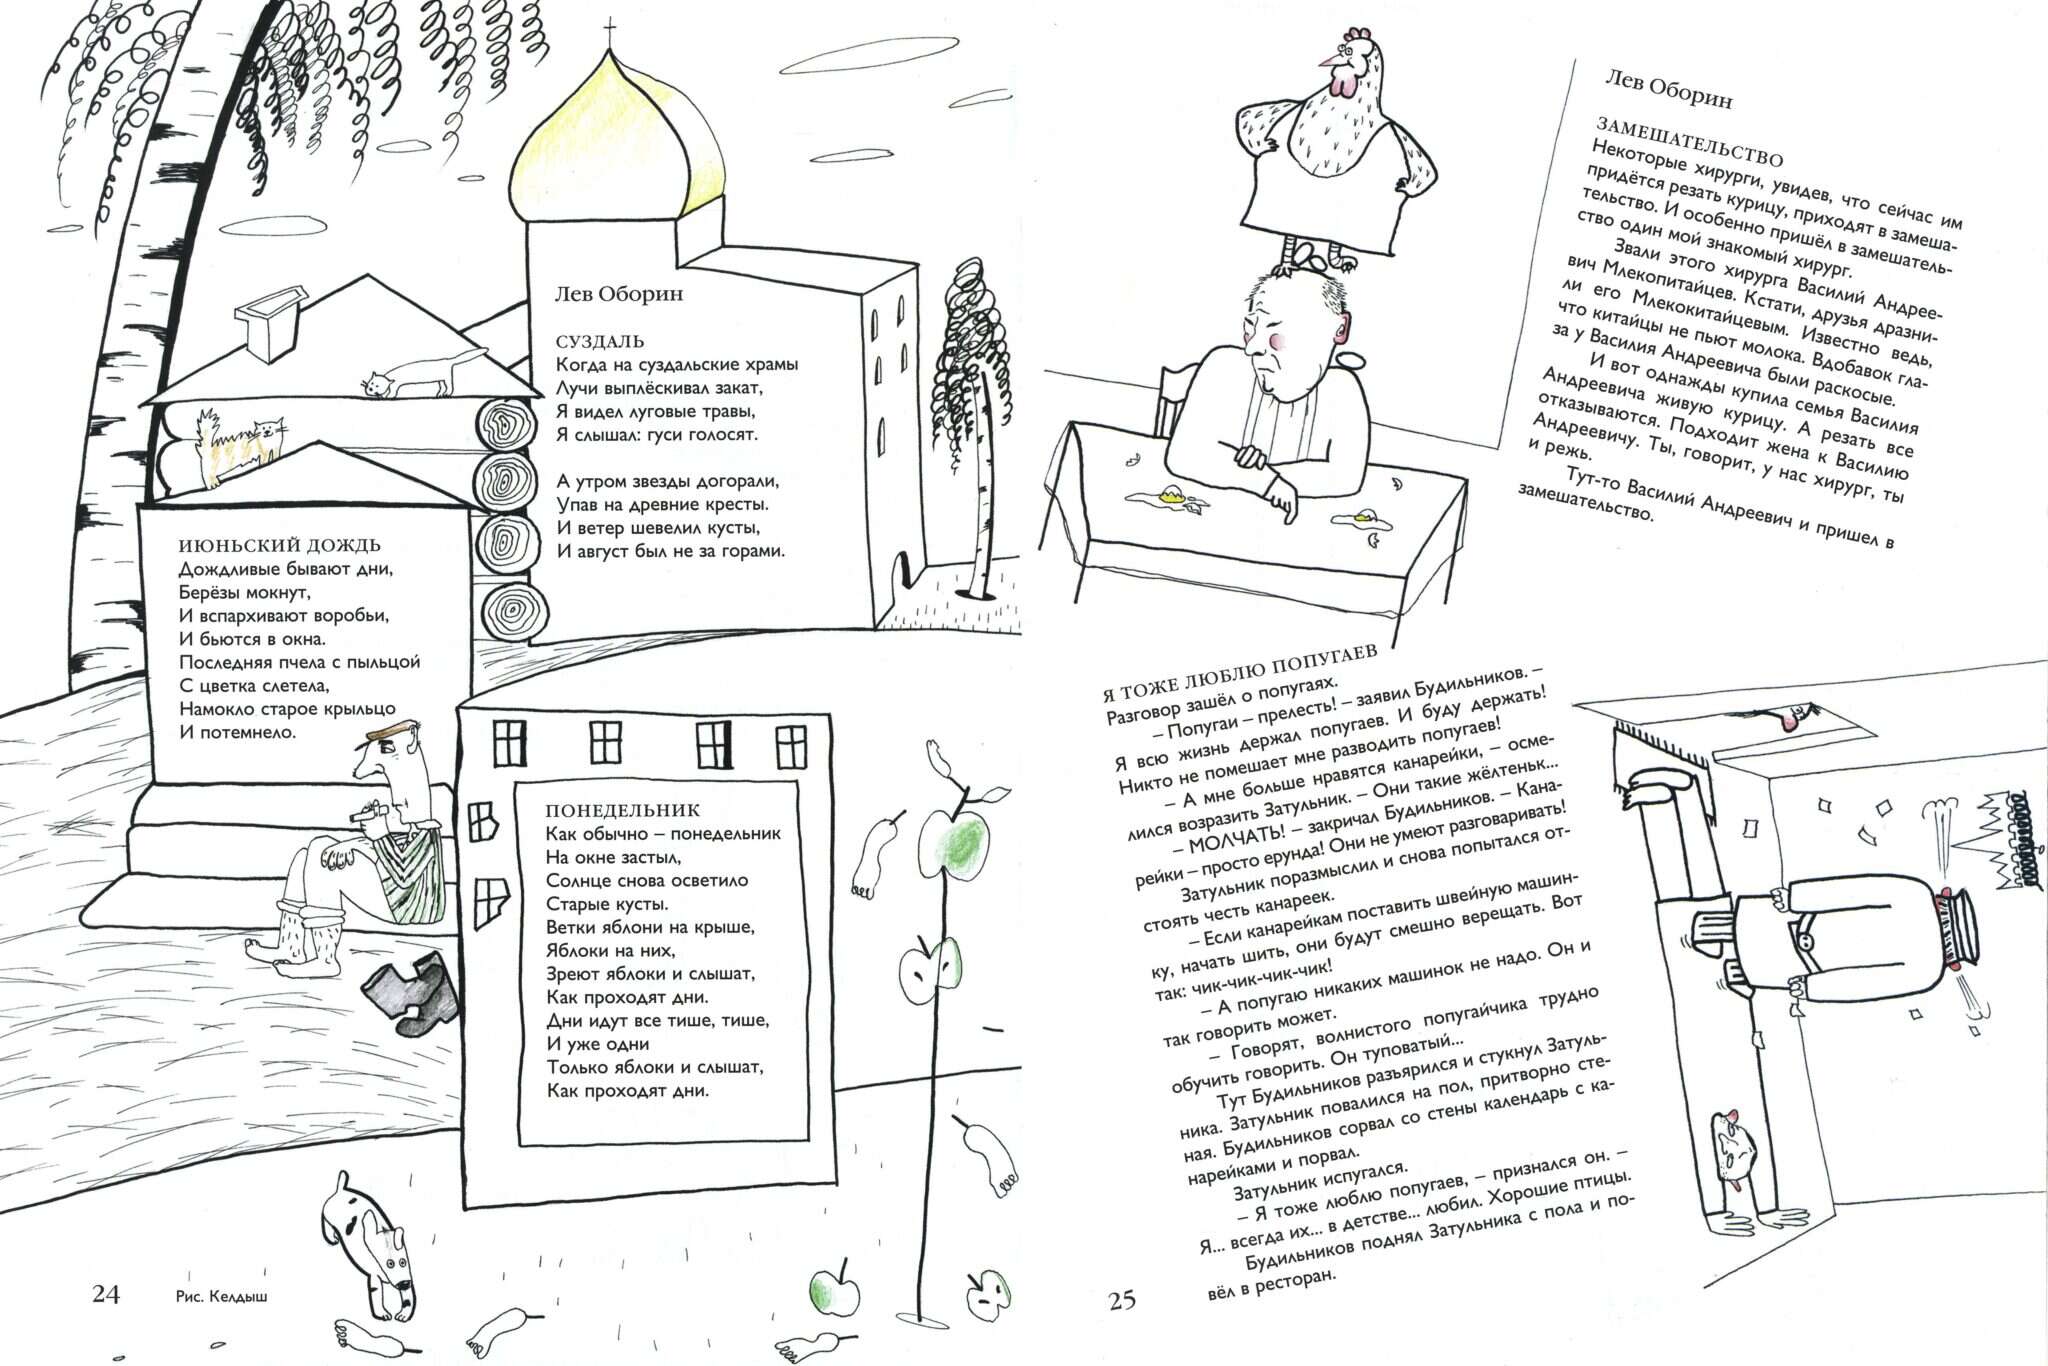 Лев Оборин
СУЗДАЛЬ
Когда на суздальские храмы
Лучи выплёскивал закат,
Я видел луговые травы,
Я слышал: гуси голосят.
А утром звезды догорали,
Упав на древние кресты.
И ветер шевелил кусты,
И август был не за горами.
ИЮНЬСКИЙ ДОЖДЬ
Дождливые бывают дни,
Берёзы мокнут,
И вспархивают воробьи,
И бьются в окна.
Последняя пчела с пыльцой
С цветка слетела,
Намокло старое крыльцо
И потемнело.
ПОНЕДЕЛЬНИК
Как обычно – понедельник
На окне застыл,
Солнце снова осветило
Старые кусты.
Ветки яблони на крыше,
Яблоки на них,
Зреют яблоки и слышат,
Как проходят дни.
Дни идут все тише, тише,
И уже одни
Только яблоки и слышат,
Как проходят дни.
24
Рис. Келдыш
Лев Оборин
ЗАМЕШАТЕЛЬСТВО
Некоторые хирурги, увидев, что сейчас им
придётся резать курицу, приходят в замеша-
тельство. И особенно пришёл в замешатель-
ство один мой знакомый хирург.
Звали этого хирурга Василий Андрее-
вич Млекопитайцев. Кстати, друзья дразни-
ли его Млекокитайцевым. Известно ведь,
что китайцы не пьют молока. Вдобавок гла-
за у Василия Андреевича были раскосые.
И вот однажды купила семья Василия
Андреевича живую курицу. А резать все
отказываются. Подходит жена к Василию
Андреевичу. Ты, говорит, у нас хирург, ты
и режь.
Тут-то Василий Андреевич и пришел в
замешательство.
Я ТОЖЕ ЛЮБЛЮ ПОПУГАЕВ
Разговор зашёл о попугаях.
– Попугаи – прелесть! – заявил Будильников. –
Я всю жизнь держал попугаев. И буду держать!
Никто не помешает мне разводить попугаев!
– А мне больше нравятся канарейки, – осме-
лился возразить Затульник. – Они такие жёлтеньк...
– МОЛЧАТЬ! – закричал Будильников. – Кана-
рейки – просто ерунда! Они не умеют разговаривать!
Затульник поразмыслил и снова попытался от-
стоять честь канареек.
– Если канарейкам поставить швейную машин-
ку, начать шить, они будут смешно верещать. Вот
так: чик-чик-чик-чик!
– А попугаю никаких машинок не надо. Он и
так говорить может.
– Говорят, волнистого попугайчика трудно
обучить говорить. Он туповатый...
Тут Будильников разъярился и стукнул Затуль-
ника. Затульник повалился на пол, притворно сте-
ная. Будильников сорвал со стены календарь с ка-
нарейками и порвал.
Затульник испугался.
– Я тоже люблю попугаев, – признался он. –
Я... всегда их... в детстве... любил. Хорошие птицы.
Будильников поднял Затульника с пола и по-
вёл в ресторан.
25